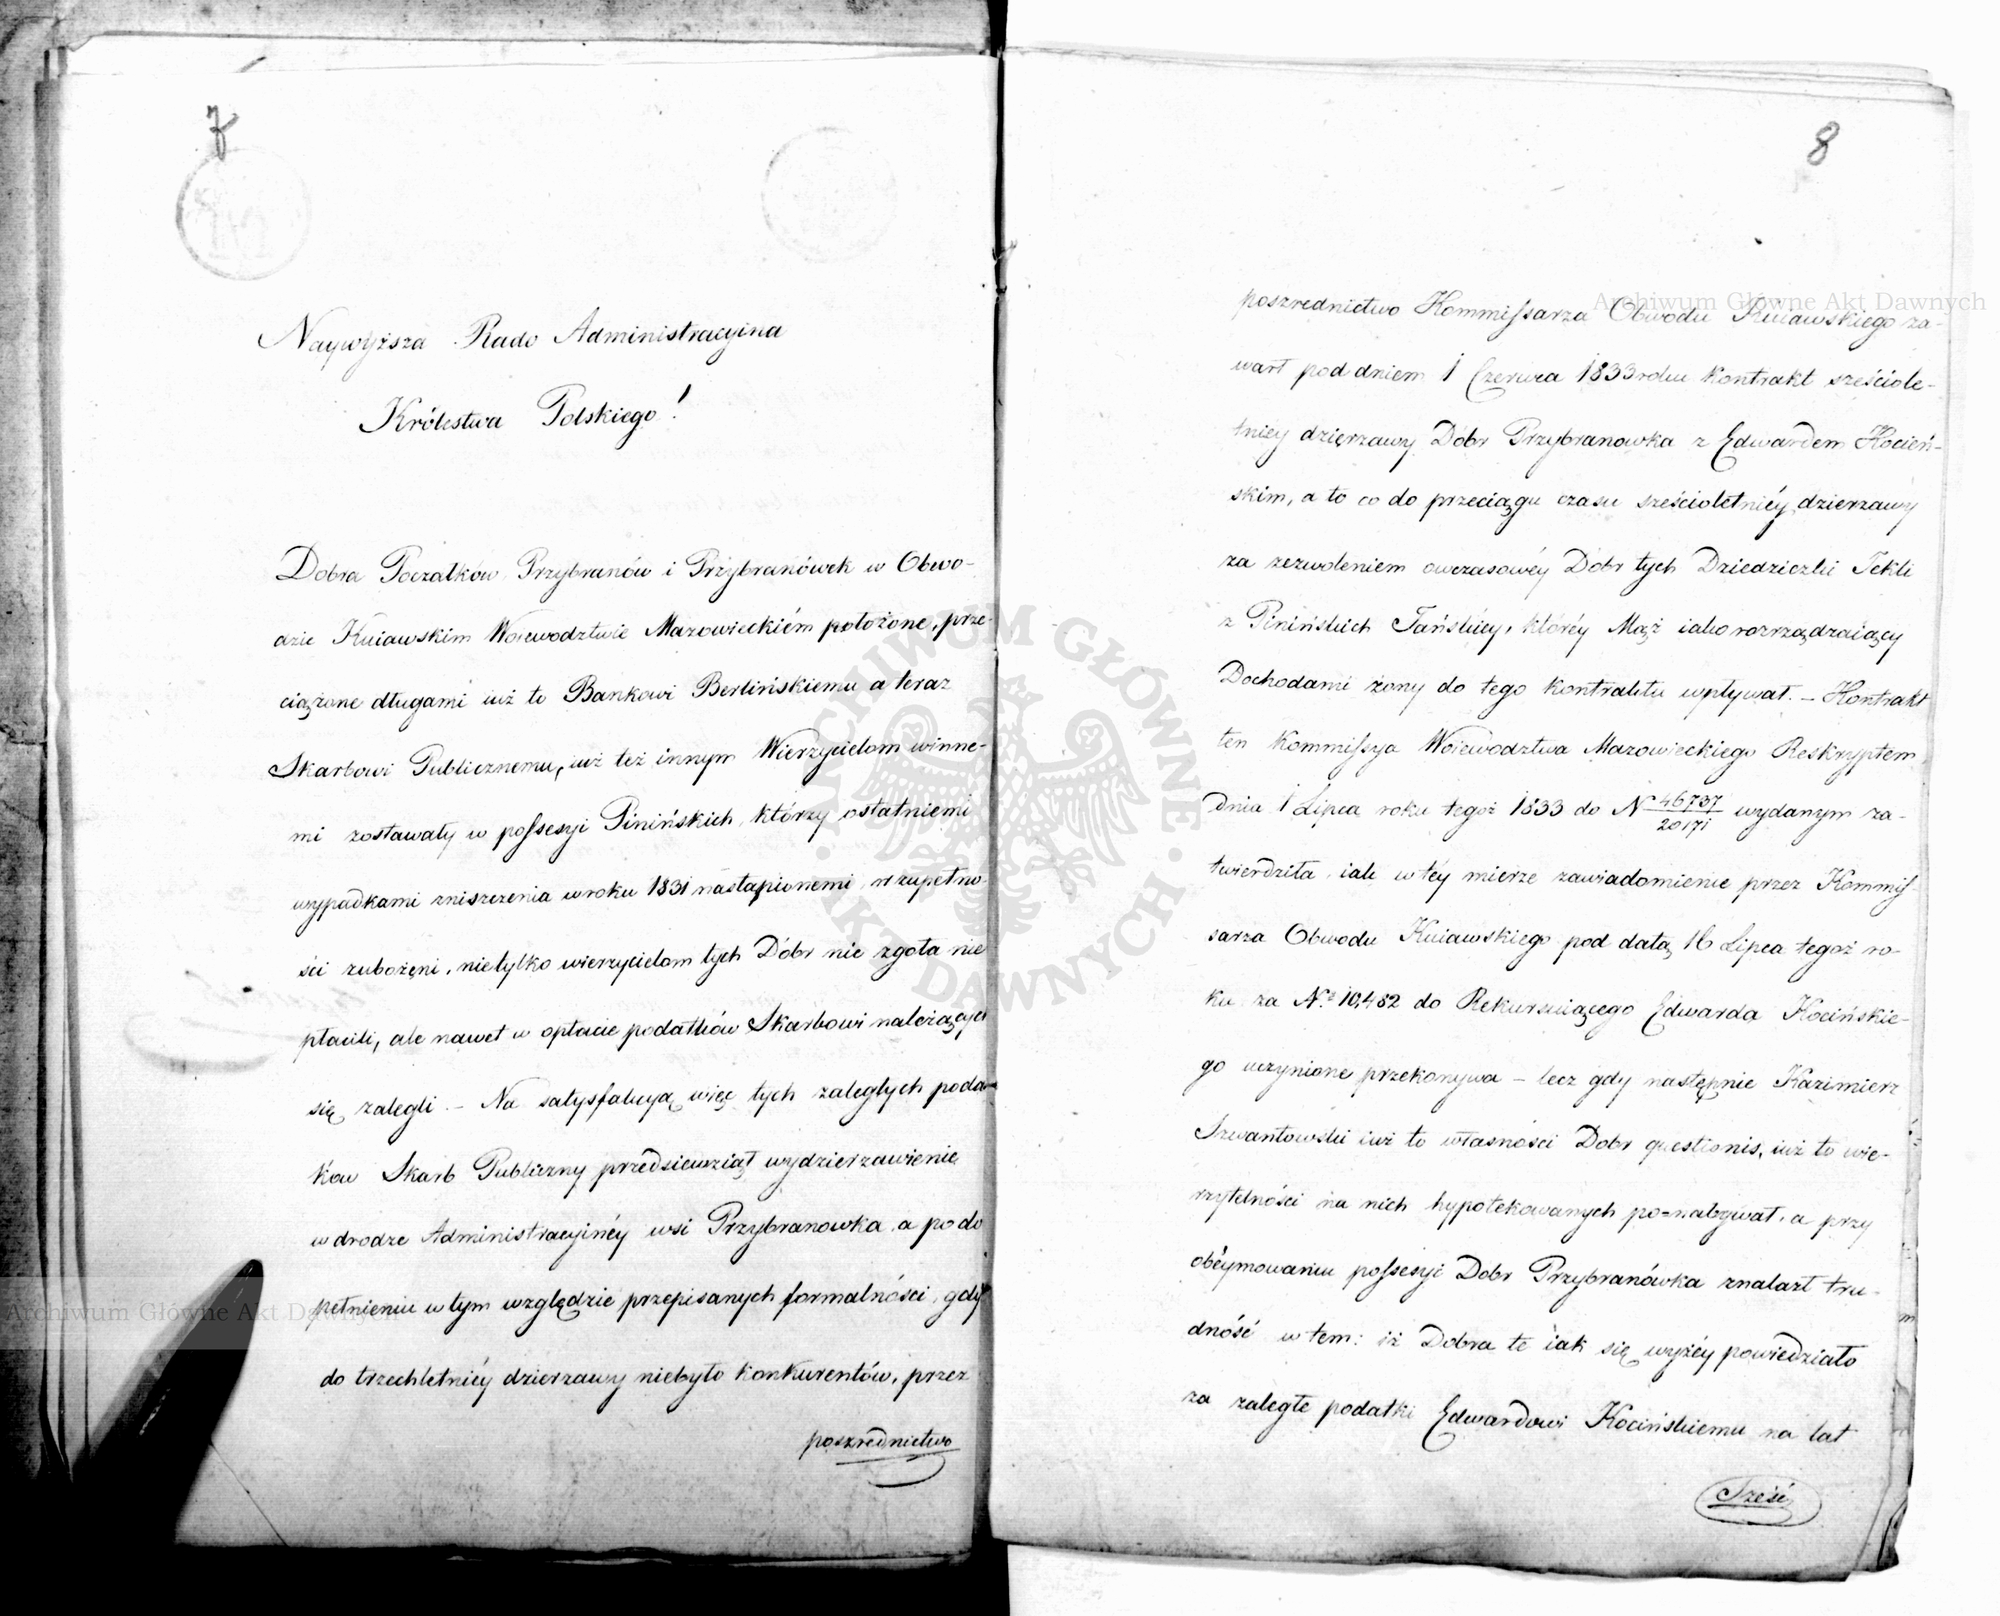 7
Naywyższa Rado Administracyina
Królestwa Polskiego!
Dobra Poczałków, Przybranów i Przybranówek w Obwo-
dzie Kuiawskim Woiewodztwie Mazowieckiém położone, prze-
ciążone długami iuż to Bankowi Berlińskiemu a teraz
Skarbowi Publicznemu, iuż też innym Wierzycielom winne-
mi zostawały w possesyi Pinińskich, którzy ostatniemi
wypadkami zniszczenia w roku 1831 nastąpionemi, w zupełno-
ści zubożęni, nietylko wierzycielom tych Dóbr nic zgoła nie
płacili, ale nawet w opłacie podatków Skarbowi należących
się zalegli. – Na satysfakcyą więc tych zaległych podat-
ków Skarb Publiczny przedsiewziął wydzierzawienie
w drodze Administracyinéy wsi Przybranowka, a po do
pełnieniu w tym względzie przepisanych formalności, gdy
do trzechletniéy dzierzawy niebyło konkurentów, przez
poszrednictwo
8
poszrednictwo Kommissarza Obwodu Kuiawskiego za-
warł pod dniem 1 Czerwca 1833 roku kontrakt sześciole-
tniéy dzięrzawy Dóbr Przybranowka z Edwardem Kocień-
skim, a to co do przeciągu czasu sześcioletniéy dzierzawy
za zezwoleniem owczasowéy Dóbr tych Dziedziczki Tekli
z Pinińskich Tańskiéy, któréy Mąż iako rozrządzaiący
Dochodami żony do tego kontraktu wpływał. – Kontrakt
ten Kommissya Woiewództwa Mazowieckiego Reskryptem
dnia 1 Lipca roku tegoż 1833 do N 46737/20171 wydanym za-
twierdziła, iak w téy mierze zawiadomienie przez Kommis-
sarza Obwodu Kuiawskiego pod datą 16 Lipca tegoż ro-
ku za N.º 10,482 do Rekursuiącego Edwarda Kocińskie-
go uczynione przekonywa – lecz gdy następnie Kazimierz
Szwantowski iuż to własności Dobr questionis, iuż to wie-
rzytelności na nich hypotekowanych po=nabywał, a przy
obéymowaniu possesyi Dobr Przybranówka znalazł tru-
dność w tem: iż Dobra te iak się wyżéy powiedziało
za zaległe podatki Edwardowi Kocińskiemu na lat
Sześć
Archiwum Główne Akt Dawnych
Archiwum Główne Akt Dawnych
ARCHIWUM GŁÓWNE AKT DAWNYCH